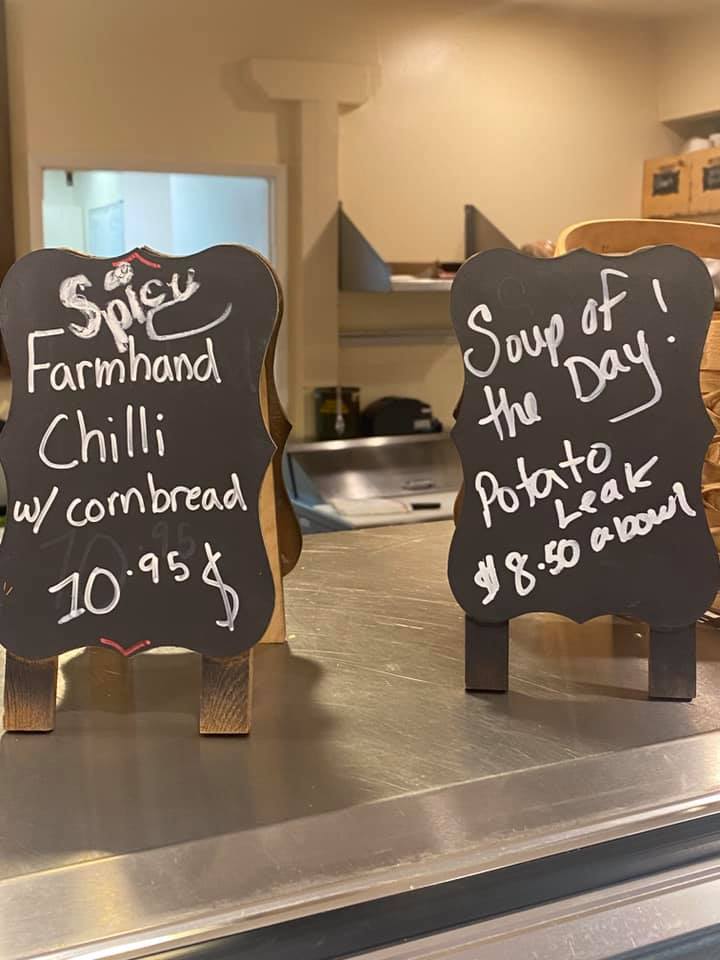 Spicy
Farmhand
Chilli
w/ cornbread
10.95 $
Soup of
the Day!
Potato
Leak
$8.50 a bowl